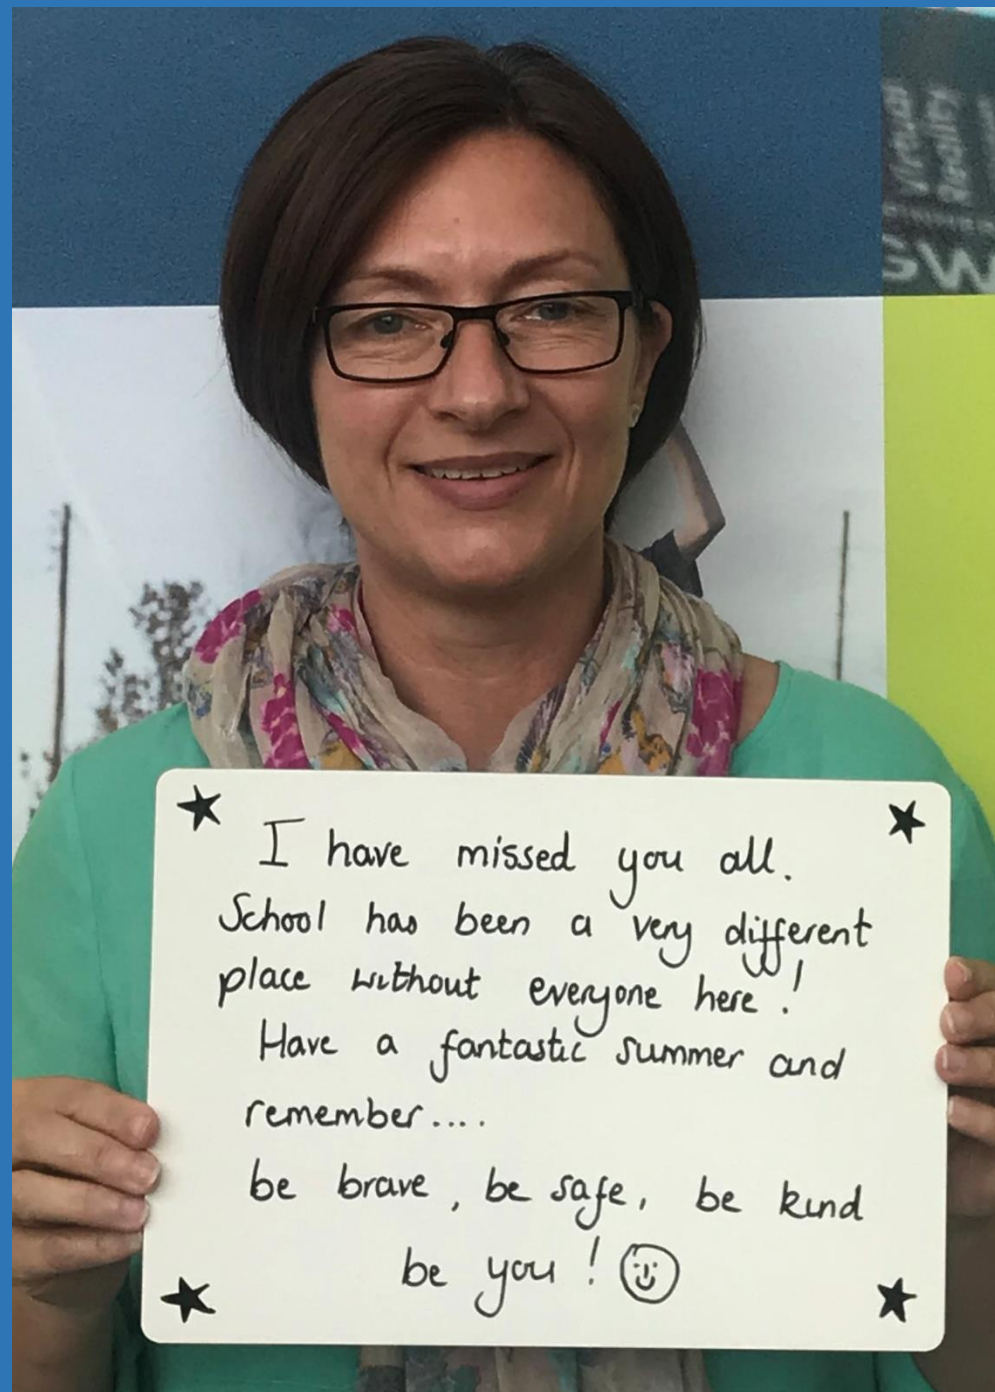 Virtual
Reality
SW
I have missed you all.
School has been a very different
place without everyone here!
Have a fantastic summer and
remember....
be brave, be safe, be kind
be you!